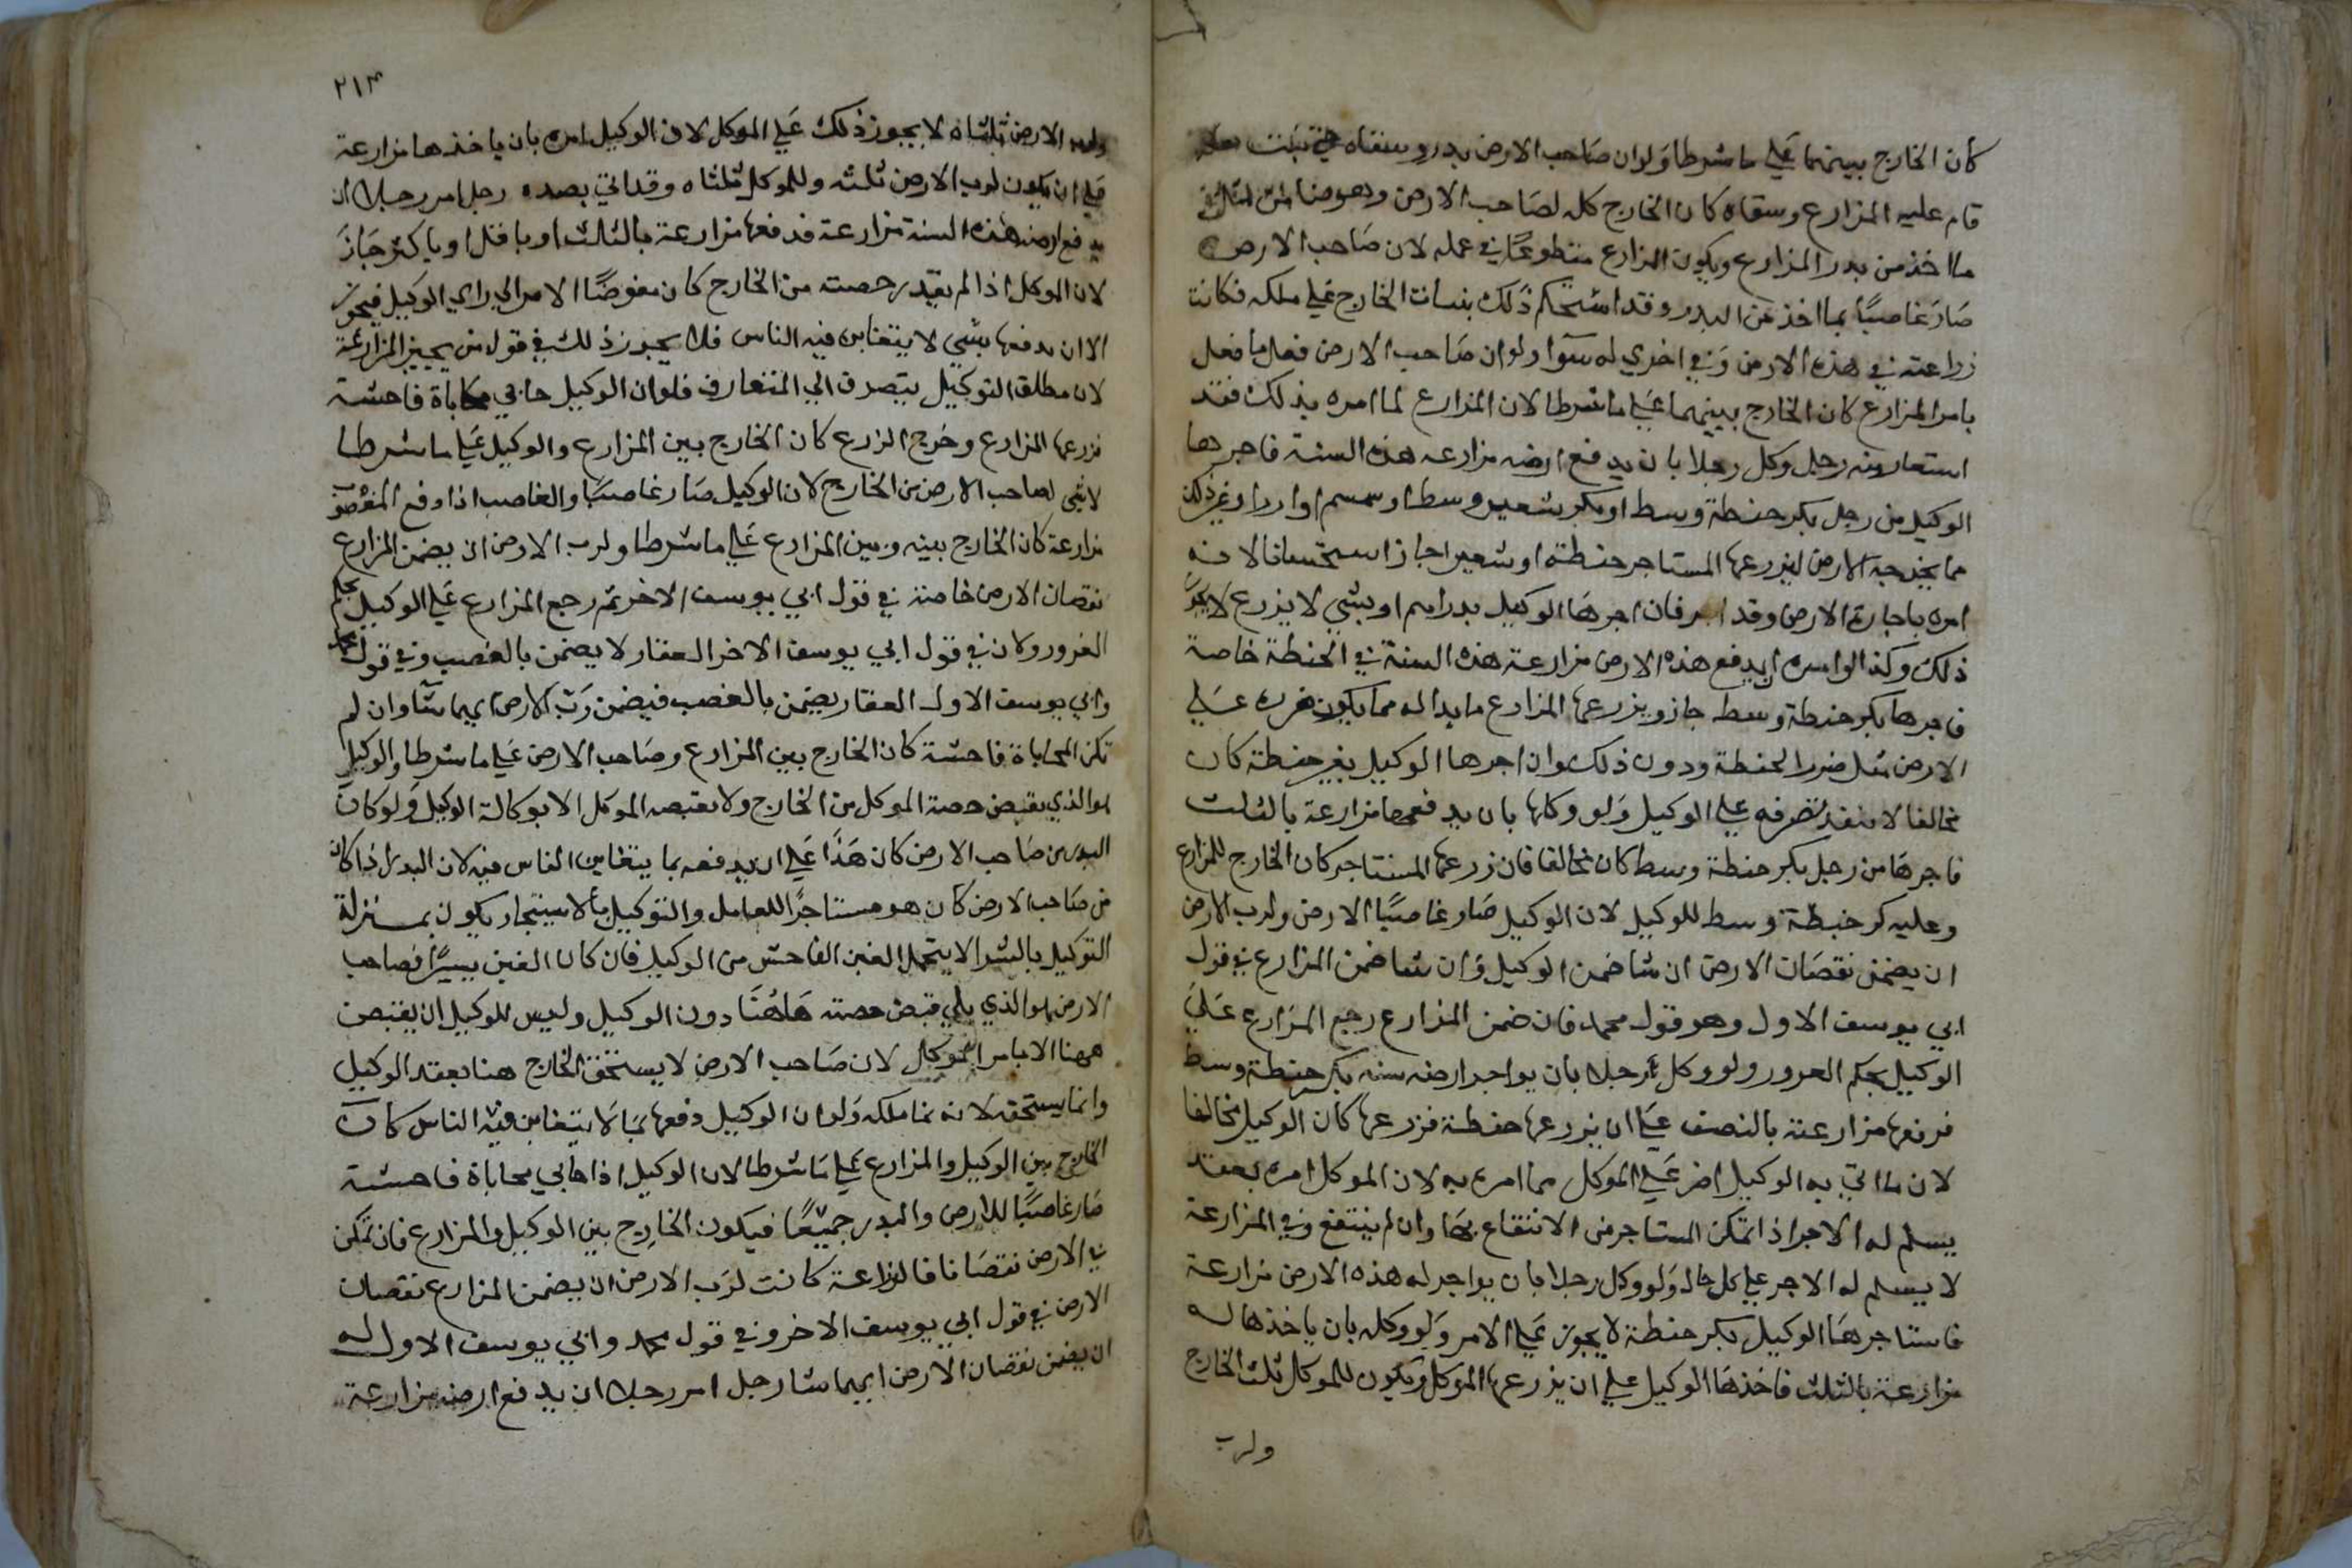 كان الخارج بينهما علي ما شرطا ولو ان صاحب الارض بدر وسقاه حتي نبتت
قام عليه المزارع وسقاه كان الخارج كله لصاحب الارض وهو ضامن لمثل
ما اخذ من بدر المزارع ويكون المزارع متطوعا في عمله لان صاحب الارض
صار غاصبا بما اخذ من البدر وقد استحكم ذلك بنبات الخارج علي ملكه فكانت
زراعته في هذه الارض وفي اخري له سوآ ولو ان صاحب الارض فعل ما فعل
بامر المزارع كان الخارج بينهما علي ما شرطا لان المزارع لما امره بذلك فقد
استعان به رجل وكل رجلا بان يدفع ارضه مزارعه هذه السنة فاجرها
الوكيل من رجل بكر حنطة وسط او بكر شعير وسط او سمسم او ارز او غير ذلك
مما يخرجه الارض ليزرعها المستاجر حنطة او شعيرا جاز استحسانا لانه
امره باجارة الارض وقد اجر فان اجرها الوكيل بدراهم او بشي لا يزرع لا يجوز
ذلك وكذا لو امره ان يدفع هذه الارض مزارعة هذه السنة في الحنطة خاصة
فاجرها بكر حنطة وسط جاز ويزرعها المزارع ما بدا له مما يكون ضرره علي
الارض مثل ضرر الحنطة ودون ذلك وان اجرها الوكيل بغير حنطة كان
مخالفا لا ينفذ تصرفه علي الوكيل ولو وكله بان يدفعها مزارعة بالثلث
فاجرها من رجل بكر حنطة وسط كان مخالفا فان زرعها المستاجر كان الخارج للمزارع
وعليه كر حنطة وسط للوكيل لان الوكيل صار غاصبا الارض ولرب الارض
ان يضمن نقصان الارض ان شا ضمن الوكيل وان شا ضمن المزارع في قول
ابي يوسف الاول وهو قول محمد فان ضمن المزارع رجع المزارع علي
الوكيل بحكم الغرور ولو وكل رجلا بان يواجر ارضه سنه بكر حنطة وسط
فدفعها مزارعة بالنصف علي ان يزرعها حنطة فزرعها كان الوكيل مخالفا
لان ما اتي به الوكيل اضر علي الموكل مما امره به لان الموكل امره بعقد
يسلم له الاجر اذا تمكن المستاجر من الانتفاع بها وان لم ينتفع وفي المزارعة
لا يسلم له الاجر علي كل حال ولو وكل رجلا بان يواجر له هذه الارض مزارعة
فاستاجرها الوكيل بكر حنطة لا يجوز علي الامر ولو وكله بان ياخذها له
مزارعة بالثلث فاخذها الوكيل علي ان يزرعها الموكل ويكون للموكل ثلث الخارج
ولرب
٢١٣
ولرب الارض ثلثاه لا يجوز ذلك علي الموكل لان الوكيل امره بان ياخذها مزارعة
علي ان يكون لرب الارض ثلثه وللموكل ثلثاه وقد اتي بضده رجل امر رجلا ان
يدفع ارضه هذه السنة مزارعة فدفعها مزارعة بالثلث او باقل او باكثر جاز
لان الموكل اذا لم يقيد حصته من الخارج كان مفوضا الامر الي راي الوكيل فيجوز
الا ان يدفعها بشي لا يتغابن فيه الناس فلا يجوز ذلك في قول من يجيز المزارعة
لان مطلق التوكيل يتصرف الي المتعارف فلو ان الوكيل حابي محاباة فاحشة
فزرعها المزارع وخرج الزرع كان الخارج بين المزارع والوكيل علي ما شرطا
لا شي لصاحب الارض من الخارج لان الوكيل صار غاصبا والغاصب اذا دفع المغصوب
مزارعة كان الخارج بينه وبين المزارع علي ما شرطا ولرب الارض ان يضمن المزارع
نقصان الارض خاصة في قول ابي يوسف الاخر ثم رجع المزارع علي الوكيل بحكم
الغرور ولان في قول ابي يوسف الاخر العقار لا يضمن بالغصب وفي قول محمد
وابي يوسف الاول العقار يضمن بالغصب فيضمن رب الارض ايهما شآ وان لم
تكن المحاباة فاحشة كان الخارج بين المزارع وصاحب الارض علي ما شرطا والوكيل
هو الذي يقبض حصة الموكل من الخارج ولا يقبضه الموكل الا بوكالة الوكيل ولو كان
البدر من صاحب الارض كان هذا علي ان يدفعه بما يتغابن الناس فيه لان البدر اذا كان
من صاحب الارض كان هو مستاجرا للعامل والتوكيل بالاستيجار يكون بمنزلة
التوكيل بالشرا لا يتحمل الغبن الفاحش من الوكيل فان كان الغبن يسيرا فصاحب
الارض هو الذي يلي قبض حصته هاهنا دون الوكيل وليس للوكيل ان يقبض
ههنا الا بامر الموكل لان صاحب الارض لا يستحق الخارج هنا بعقد الوكيل
وانما يستحقه لانه نما ملكه ولو ان الوكيل دفعها بما لا يتغابن فيه الناس كان
الخارج بين الوكيل والمزارع علي ما شرطا لان الوكيل اذا حابي محاباة فاحشة
صار غاصبا للارض والبدر جميعا فيكون الخارج بين الوكيل والمزارع فان تمكن
في الارض نقصانا فالزراعة كانت لرب الارض ان يضمن المزارع نقصان
الارض في قول ابي يوسف الاخر وفي قول محمد وابي يوسف الاول له
ان يضمن نقصان الارض ايهما شا رجل امر رجلا ان يدفع ارضه مزارعة